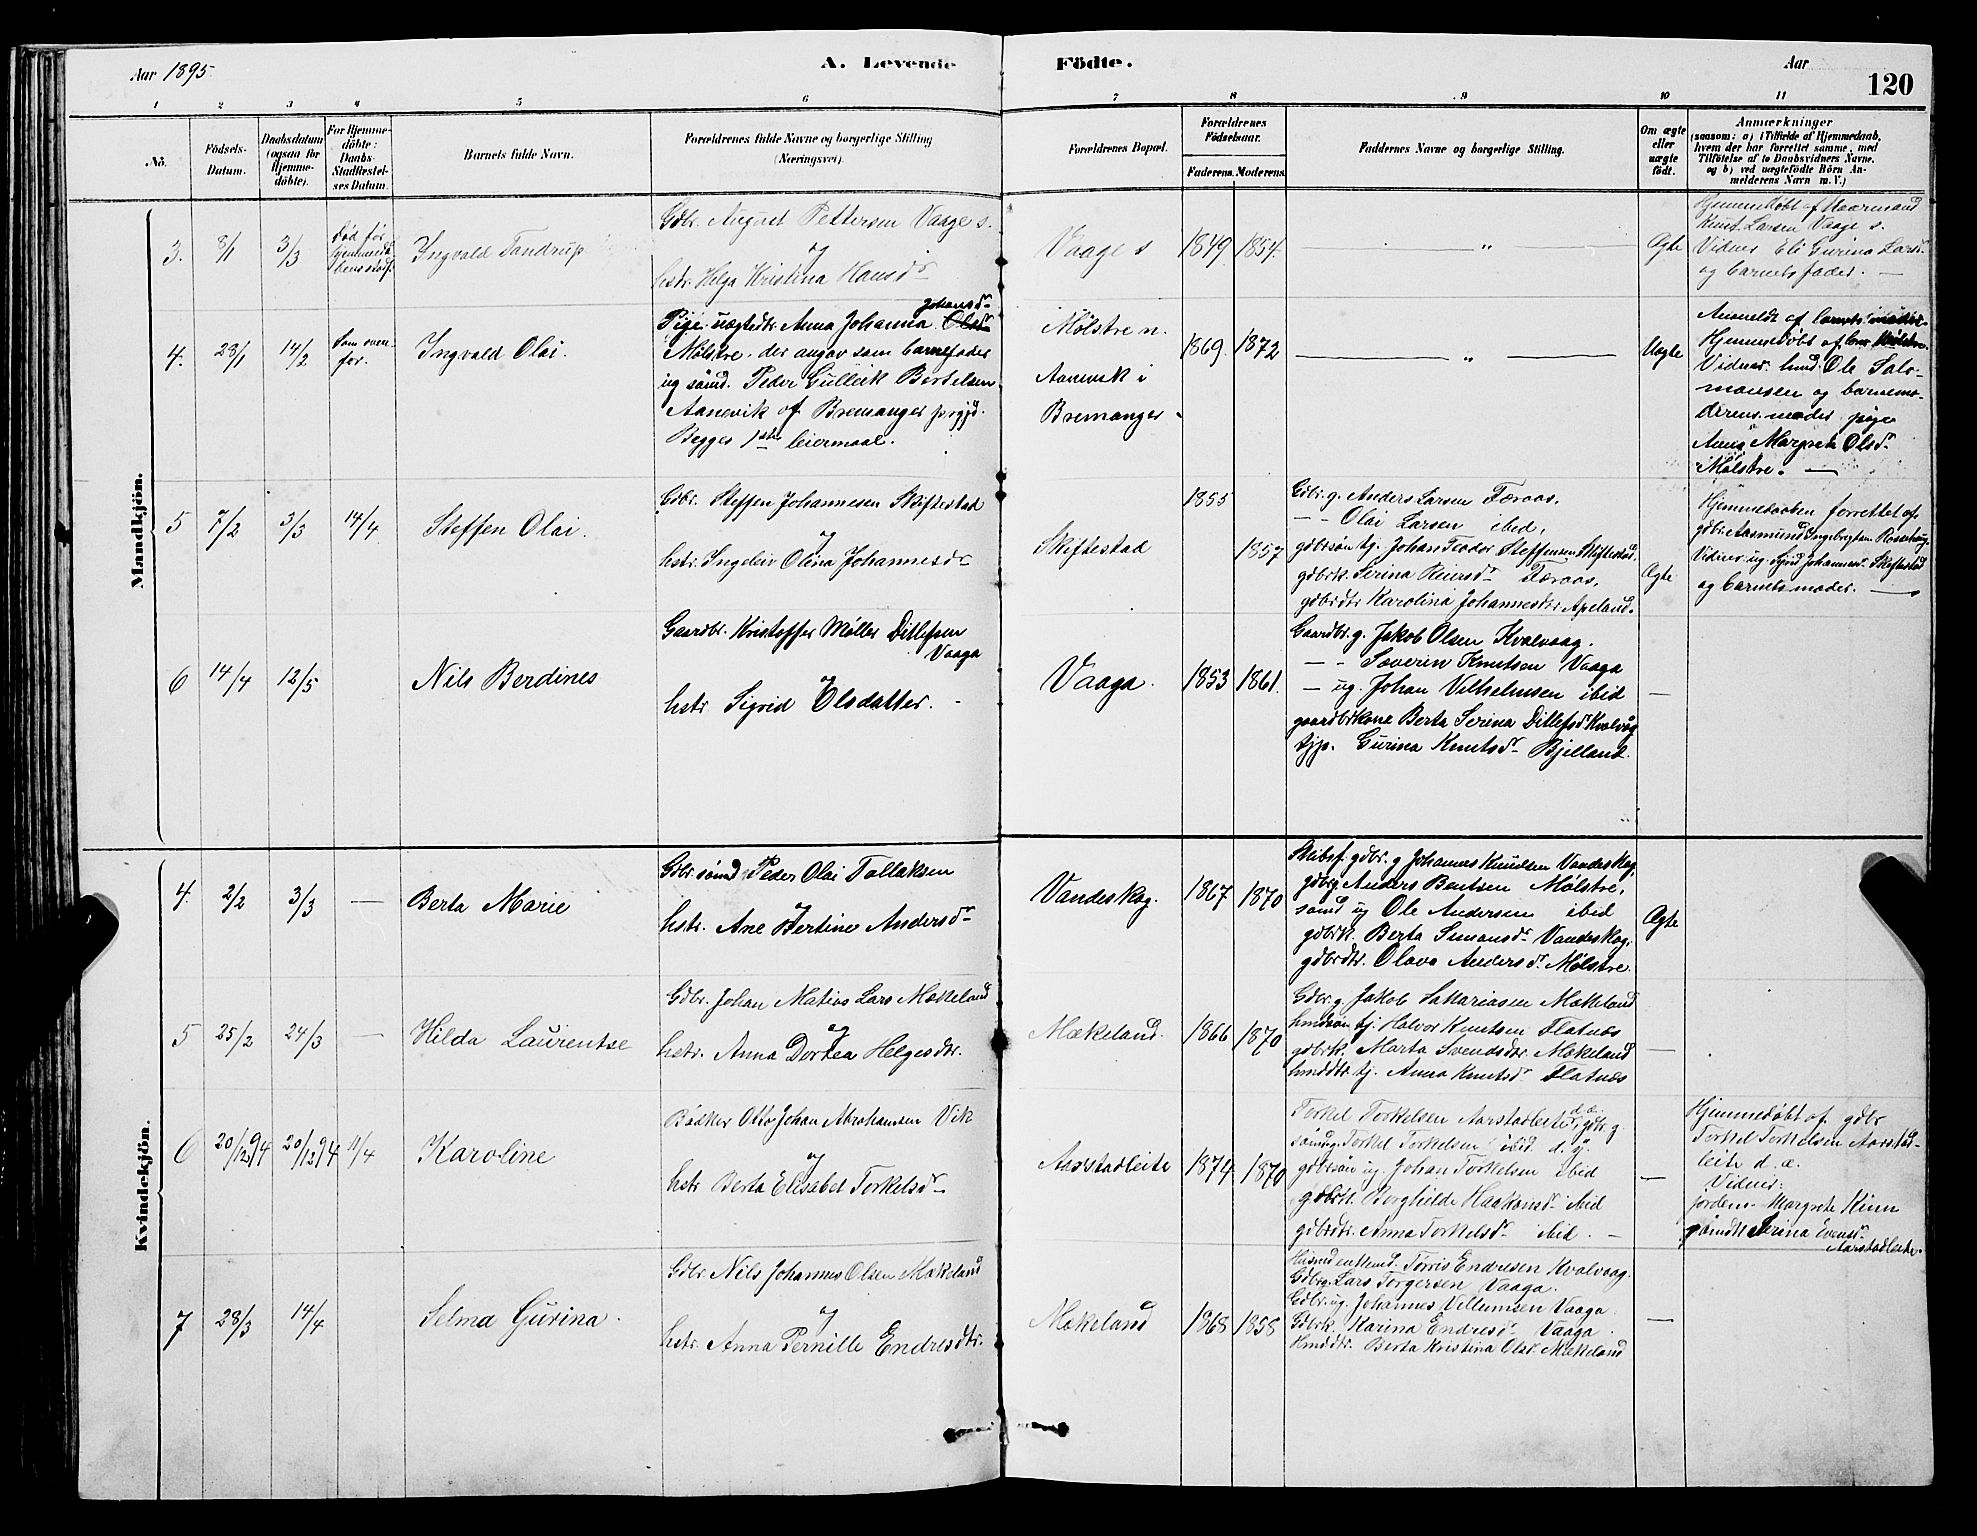 Aar 1895
A. Levende Födte.
Aar
120
1 2 3 4 5 6 7 8 9 10 11
No.
Födsels-Datum.
Daabsdatum (ogsaa for Hjemmedöbte).
For Hjemmedöbte: Daabs-Stadfæstelses Datum.
Barnets fulde Navn.
Forældrenes fulde Navne og borgerlige Stilling (Næringsvei).
Forældrenes Bopæl.
Forældrenes Födselsaar.
Faderens. Moderens.
Faddernes Navne og borgerlige Stilling.
Om ægte eller uægte födt.
Anmærkninger
(saasom: a) i Tilfælde af Hjemmedaab,
hvem der har forrettet samme, med
Tilföielse af to Daabsvidners Navne,
og b) ved uægtefödte Börn Anmelderens Navn m. V.)
Mandkjön.
3. 8/1 3/3
Död før
Ingvald Tandrup
Gdbr. August Pettersen Vaage s.
og
hstr. Helga Kristina Hansdr
Vaage s
1849 1854.
— " —
Ægte
Hjemmedøbt af
Knut Larsen Vaage s.
Vidner Eli Gurina Larsd.
og barnets fader. —
4. 28/1 14/2
Som oven-
for.
Ingvald Olai.
Johansdr
Pige uægtedtr. Anna Johanna Olsdr
Mølstre, der angav som barnefader
ug sømd. Peder Gullick Bertelsen
Aanevik af Bremanger prgjd.
Begges 1ste leiermaal.
Mølstre n.
Aanevik i
Bremanger
1869. 1872
— " —
Uægte
Anmeldt af barnets moder
Hjemmedøbt af
Vidner: hmd. Ole Salo-
monsen og barnemo-
derens moder pige
Anna Margreta Olsdr
Mølstre. —
5 7/2 3/3 14/4
Steffen Olai.
Gdbr. Steffen Johannesen Skiftestad
og
hstr. Ingeleiv Olina Johannesdr
Skiftestad
1855
1857
Gdbr. g. Anders Larsen Færaas.
— - Olai Larsen ibid.
gdbrsøn tj. Johan Teodor Steffensen Skiftestad.
gdbrk. Serina Færaas.
gdbrdtr Karolina Johannesdtr Apeland.
Ægte
Hjemmedaaben forrettet af
gdbr. Aasmund Ingebrigtsen
Vidner ug. Sigrid Johannesdr Skiftestad
og barnets moder. —
6 14/4 12/5
Nils Berdines
Gaardbr. Kristoffer Møller Ditlefsen
Vaaga
og
hstr Sigrid Olsdatter.
Vaaga.
1853 1861.
Gaardbr. g. Jakob Olsen Kvalvaag.
— - Søverin Knutsen Vaaga
— ug. Johan Vilhelmsen ibid
gaardbrkone Berta Serina Ditlefsdr Kvalvåg
tjp. Gurina Knutsdr Bjelland.
—
Kvindekjön.
4. 2/2 3/3 —
Berta Marie
Gdbr. sømd Peder Olai Tollaksen
og
hstr. Ane Bertine Andersdr
Vandeskog.
1867 1870
Skibsf. gdbr. g Johannes Knudsen Vandeskog,
gdbrg Anders Bentsen Mølstre,
sømd ug Ole Andersen ibid
gdbrk. Berta Simonsdr Vandeskog,
gdbrdtr. Olava Andersdr. Mølstre.
Ægte
5 25/2 24/3 —
Hilda Laurentse
Gdbr. Johan Matias Lars Mækeland
og
hstr. Anna Dortea Helgesdtr.
Mækeland.
1866 1870
Gdbr. g. Jakob Sakariasen Mækeland
hmdsøn tj. Halvor Knutsen Flatnæs
gdbrk. Marta Svendsdtr. Mækeland
hmddtr tj. Anna Knutsdr Flatnæs
—
6 20/12 94 20/12 94 11/4
Karoline
Bødker Otto Johan Abrahamsen Vik
og
hstr Berta Elisabet Torkelsdr
Aarstadleite
1874 1870
Torkel Torkelsen Aarstadleite d.æ. gdbr. g.
sømdg. Torkel Torkelsen ibid. d. y.
gdbrsøn ug. Johan Torkelsen ibid
gdbrk. Borghilde Haakonsdr ibid
gdbrdtr. Anna Torkelsdr ibid. —
—
Hjemmedøbt af gdbr
Torkel Torkelsen Aarstad-
leite d. æ.
Vidner:
jordem. Margrete Kinn
gsmdk Serina Evensdr
Aarstadleite.
7 28/3 14/4
Selma Gurina.
Gdbr Nils Johannes Olsen Mækeland
og
hstr. Anna Pernille Endresdtr.
Mækeland
1868 1858
Husmd enkemd. Torris Endresen Kvalvaag.
Gdbrg. Lars Torgersen Vaaga.
Gdbr. ug. Johannes Villumsen Vaaga
Gdbrk. Karina Endresdr Vaaga.
Hmddtr. Berta Kristina Olsd. Mækeland
—